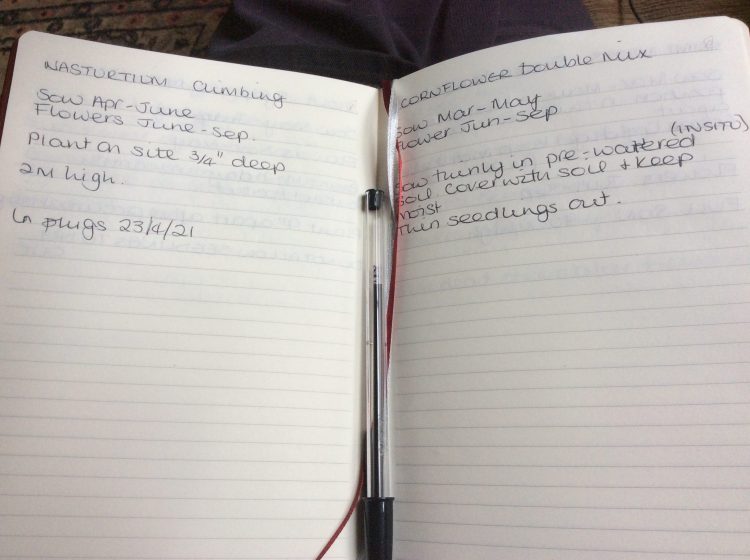 NASTURTIUM Climbing
Sow Apr-June
Flowers June-Sep.
Plant on site 3/4" deep
2M high.
In plugs 23/4/21
CORNFLOWER Double Mix
Sow Mar-May
Flower Jun-Sep
(INSITU)
Sow thinly in pre-watered
soil. Cover with soil + keep
moist
Thin seedlings out.